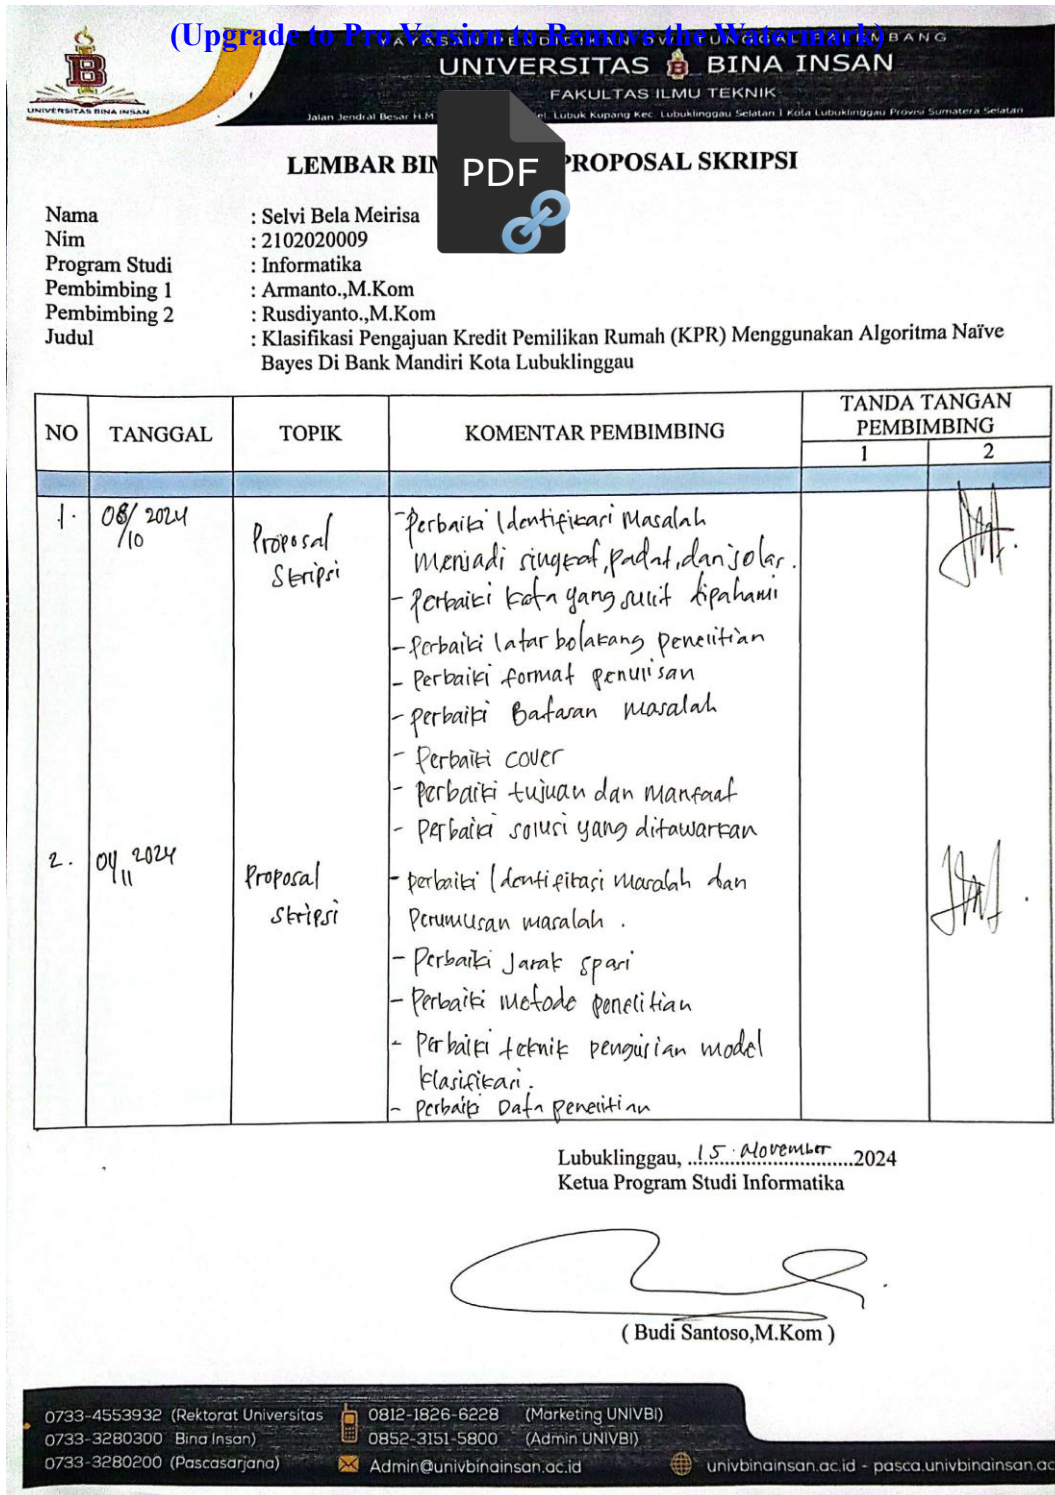 (Upgrade to Pro Version to Remove the Watermark)
UNIVERSITAS BINA INSAN
FAKULTAS ILMU TEKNIK
UNIVERSITAS BINA INSAN
Jalan Jendral Besar H.M Kel. Lubuk Kupang Kec. Lubuklinggau Selatan 1 Kota Lubuklinggau Provinsi Sumatera Selatan
PDF
LEMBAR PROPOSAL SKRIPSI
Nama : Selvi Bela Meirisa
Nim : 2102020009
Program Studi : Informatika
Pembimbing 1 : Armanto.,M.Kom
Pembimbing 2 : Rusdiyanto.,M.Kom
Judul : Klasifikasi Pengajuan Kredit Pemilikan Rumah (KPR) Menggunakan Algoritma Naïve
Bayes Di Bank Mandiri Kota Lubuklinggau
NO TANGGAL TOPIK KOMENTAR PEMBIMBING TANDA TANGAN PEMBIMBING
1 2
1. 08/10 2024 Proposal Skripsi
- Perbaiki Identifikasi Masalah
menjadi singkat, padat, dan jelas.
- Perbaiki kata yang sulit dipahami
- Perbaiki latar belakang penelitian
- Perbaiki format penulisan
- perbaiki Batasan masalah
- Perbaiki cover
- perbaiki tujuan dan manfaat
- perbaiki solusi yang ditawarkan
2. 04/11 2024 Proposal Skripsi
- perbaiki Identifikasi masalah dan
Perumusan masalah.
- Perbaiki Jarak spasi
- Perbaiki metode penelitian
- Perbaiki teknik pengujian model
klasifikasi.
- Perbaiki Data penelitian
Lubuklinggau, 15 November 2024
Ketua Program Studi Informatika
( Budi Santoso,M.Kom )
0733-4553932 (Rektorat Universitas
0733-3280300 Bina Insan)
0733-3280200 (Pascasarjana)
0812-1826-6228 (Marketing UNIVBI)
0852-3151-5800 (Admin UNIVBI)
Admin@univbinainsan.ac.id
univbinainsan.ac.id - pasca.univbinainsan.ac